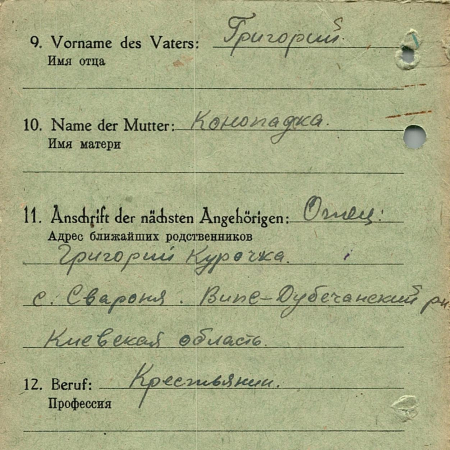 9. Vorname des Vaters: Григорий.
Имя отца
10. Name der Mutter: Конопадка.
Имя матери
11. Anschrift der nächsten Angehörigen: Отец:
Адрес ближайших родственников
Григорий Курочка.
с. Свароня. Випе-Дубечанский рн.
Киевская область.
12. Beruf: Крестьянин.
Профессия